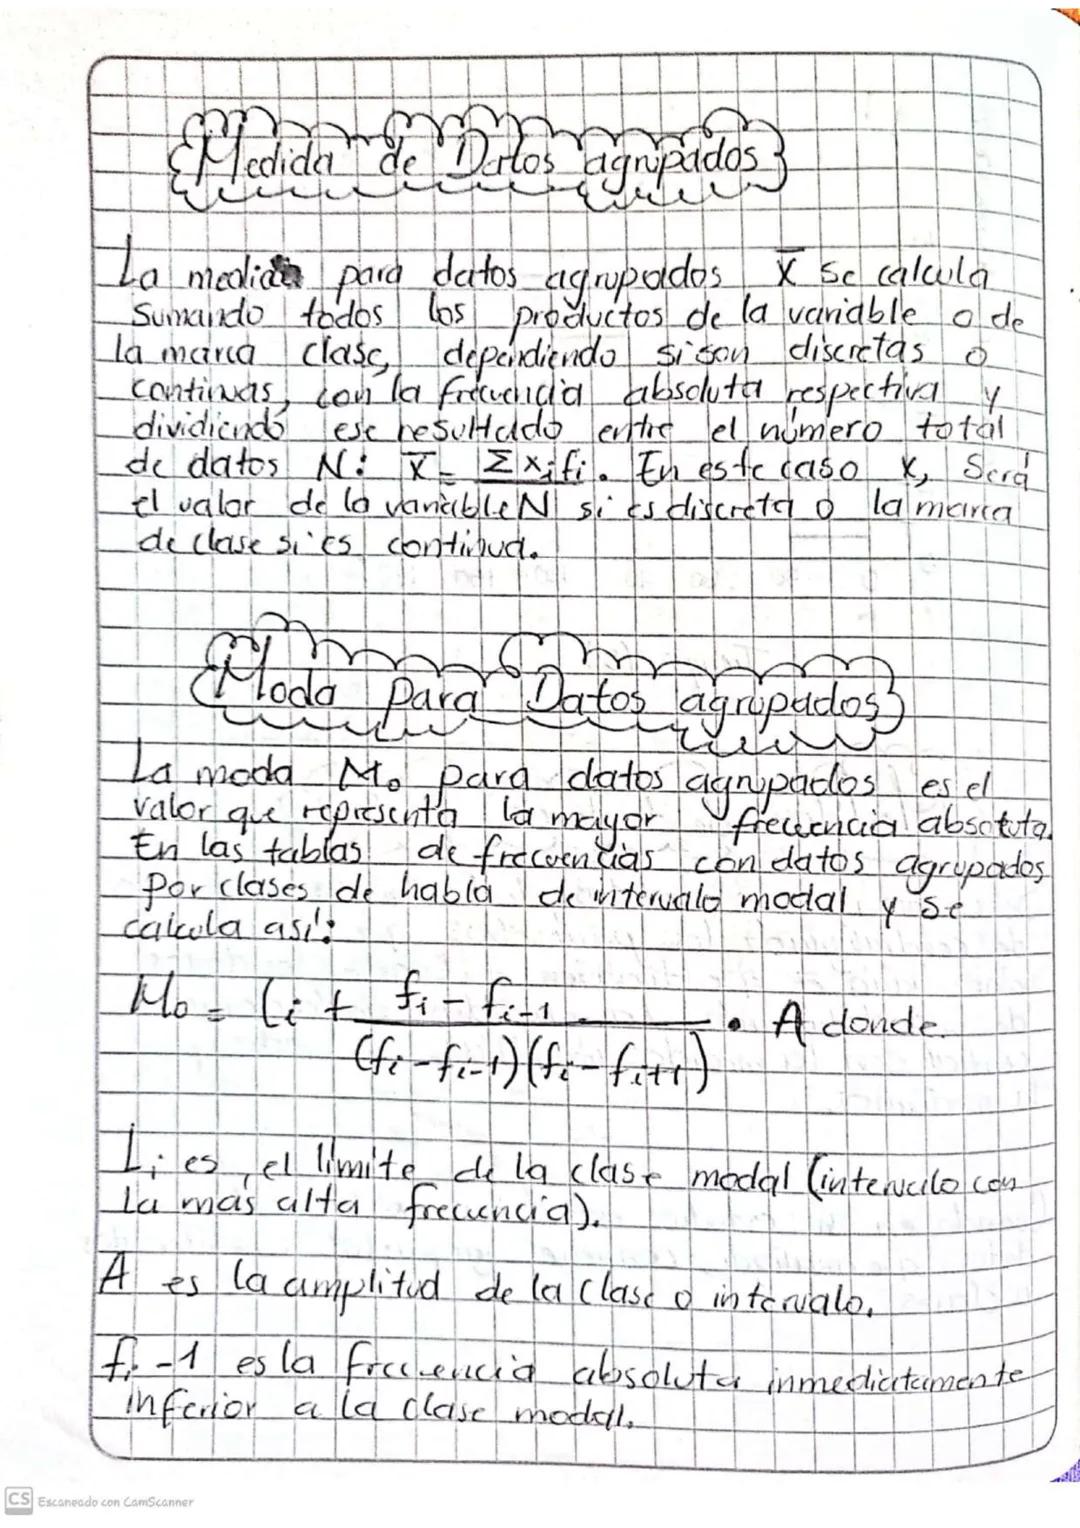 Medida de Datos agrupados
La media para datos agrupados X̅ se calcula
Sumando todos los productos de la variable o de
la marca clase, dependiendo si son discretas o
continuas, con la frecuencia absoluta respectiva y
dividiendo ese resultado entre el número total
de datos N: X̅ = Σxifi. En este caso x, Será
el valor de la variable N si es discreta o la marca
de clase si es continua.
Moda para Datos agrupados
La moda Mo para datos agrupados es el
valor que representa la mayor frecuencia absoluta.
En las tablas de frecuencias con datos agrupados
por clases de habla de intervalo modal y se
calcula así:
Mo = Li + fi - fi-1 . A donde
(fi - fi-1)(fi - fi+1)
Li es el límite de la clase modal (intervalo con
la más alta frecuencia).
A es la amplitud de la clase o intervalo.
fi-1 es la frecuencia absoluta inmediatamente
inferior a la clase modal.
CS Escaneado con CamScanner